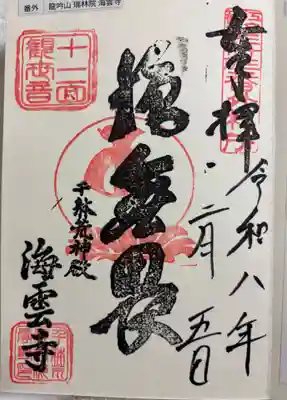 番外 龍吟山 瑞林院 海雲寺
奉拝
令和八年
二月五日
施無畏
十一面
観世音
千躰荒神殿
海雲寺